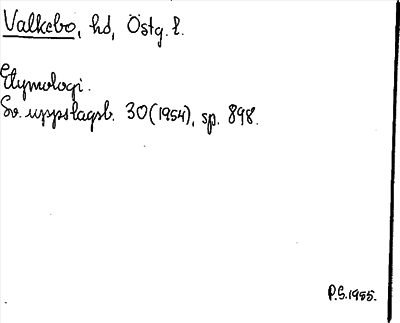 Valkebo, hd, Östg. l.
Etymologi.
Sv. uppslagsb. 30 (1954), sp. 898.
P.S. 1955.